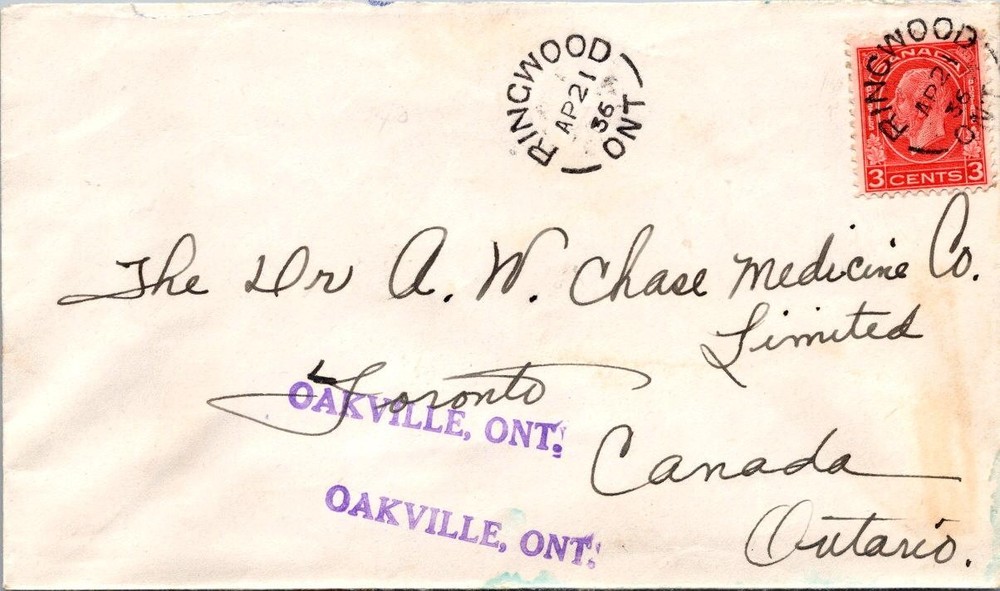 RINGWOOD
AP 21
36
ONT
RINGWOOD
AP 21
36
ONT
CANADA
3 CENTS 3
The Dr A. W. Chase Medicine Co.
Limited
Toronto
OAKVILLE, ONT.
Canada
OAKVILLE, ONT.
Ontario.